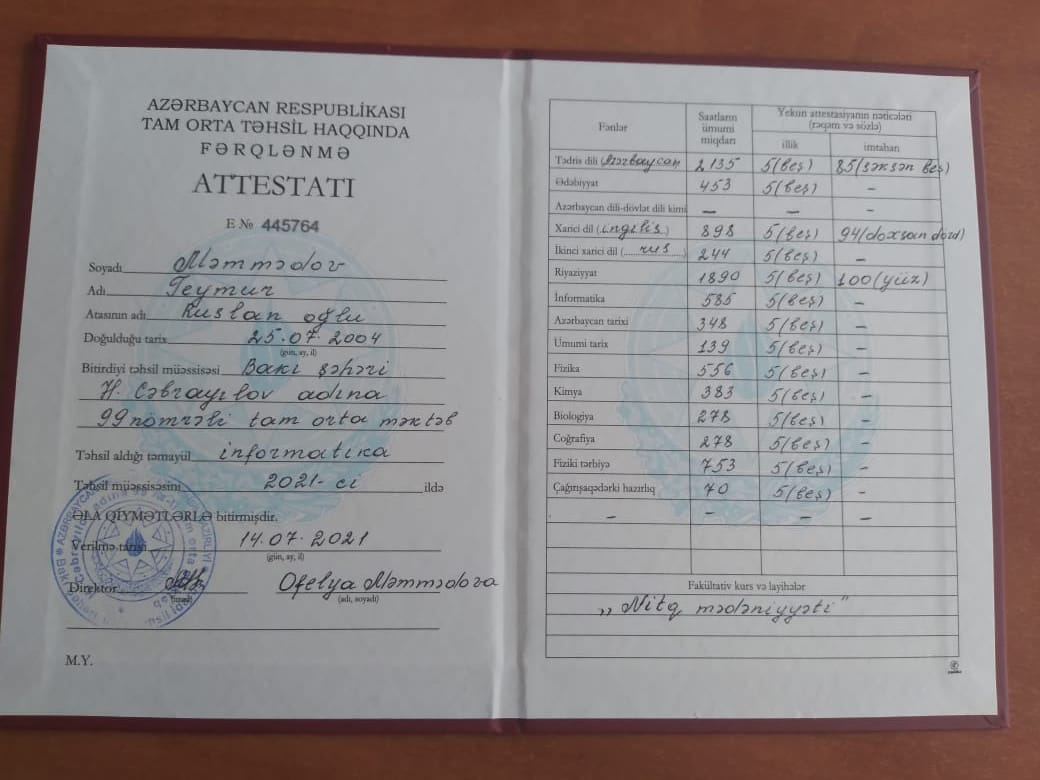 AZƏRBAYCAN RESPUBLİKASI
TAM ORTA TƏHSİL HAQQINDA
FƏRQLƏNMƏ
ATTESTATI
E № 445764
Soyadı Məmmədov
Adı Teymur
Atasının adı Ruslan oğlu
Doğulduğu tarix 25.07.2004
(gün, ay, il)
Bitirdiyi təhsil müəssisəsi Bakı şəhəri
H. Cəbrayılov adına
99 nömrəli tam orta məktəb
Təhsil aldığı təmayül informatika
Təhsil müəssisəsini 2021-ci ildə
ƏLA QİYMƏTLƏRLƏ bitirmişdir.
Verilmə tarixi 14.07.2021
(gün, ay, il)
Direktor Ofelya Məmmədova
(imza) (adı, soyadı)
M.Y.
Fənlər Saatların ümumi miqdarı Yekun attestasiyanın nəticələri (rəqəm və sözlə)
illik imtahan
Tədris dili (Azərbaycan) 2135 5(beş) 85(səksən beş)
Ədəbiyyat 453 5(beş) –
Azərbaycan dili-dövlət dili kimi – – –
Xarici dil (ingilis) 898 5(beş) 94(doxsan dörd)
İkinci xarici dil (rus) 244 5(beş) –
Riyaziyyat 1890 5(beş) 100(yüz)
İnformatika 585 5(beş) –
Azərbaycan tarixi 348 5(beş) –
Ümumi tarix 139 5(beş) –
Fizika 556 5(beş) –
Kimya 383 5(beş) –
Biologiya 278 5(beş) –
Coğrafiya 278 5(beş) –
Fiziki tərbiyə 753 5(beş) –
Çağırışaqədərki hazırlıq 70 5(beş) –
– – – –
Fakültativ kurs və layihələr
„Nitq mədəniyyəti"